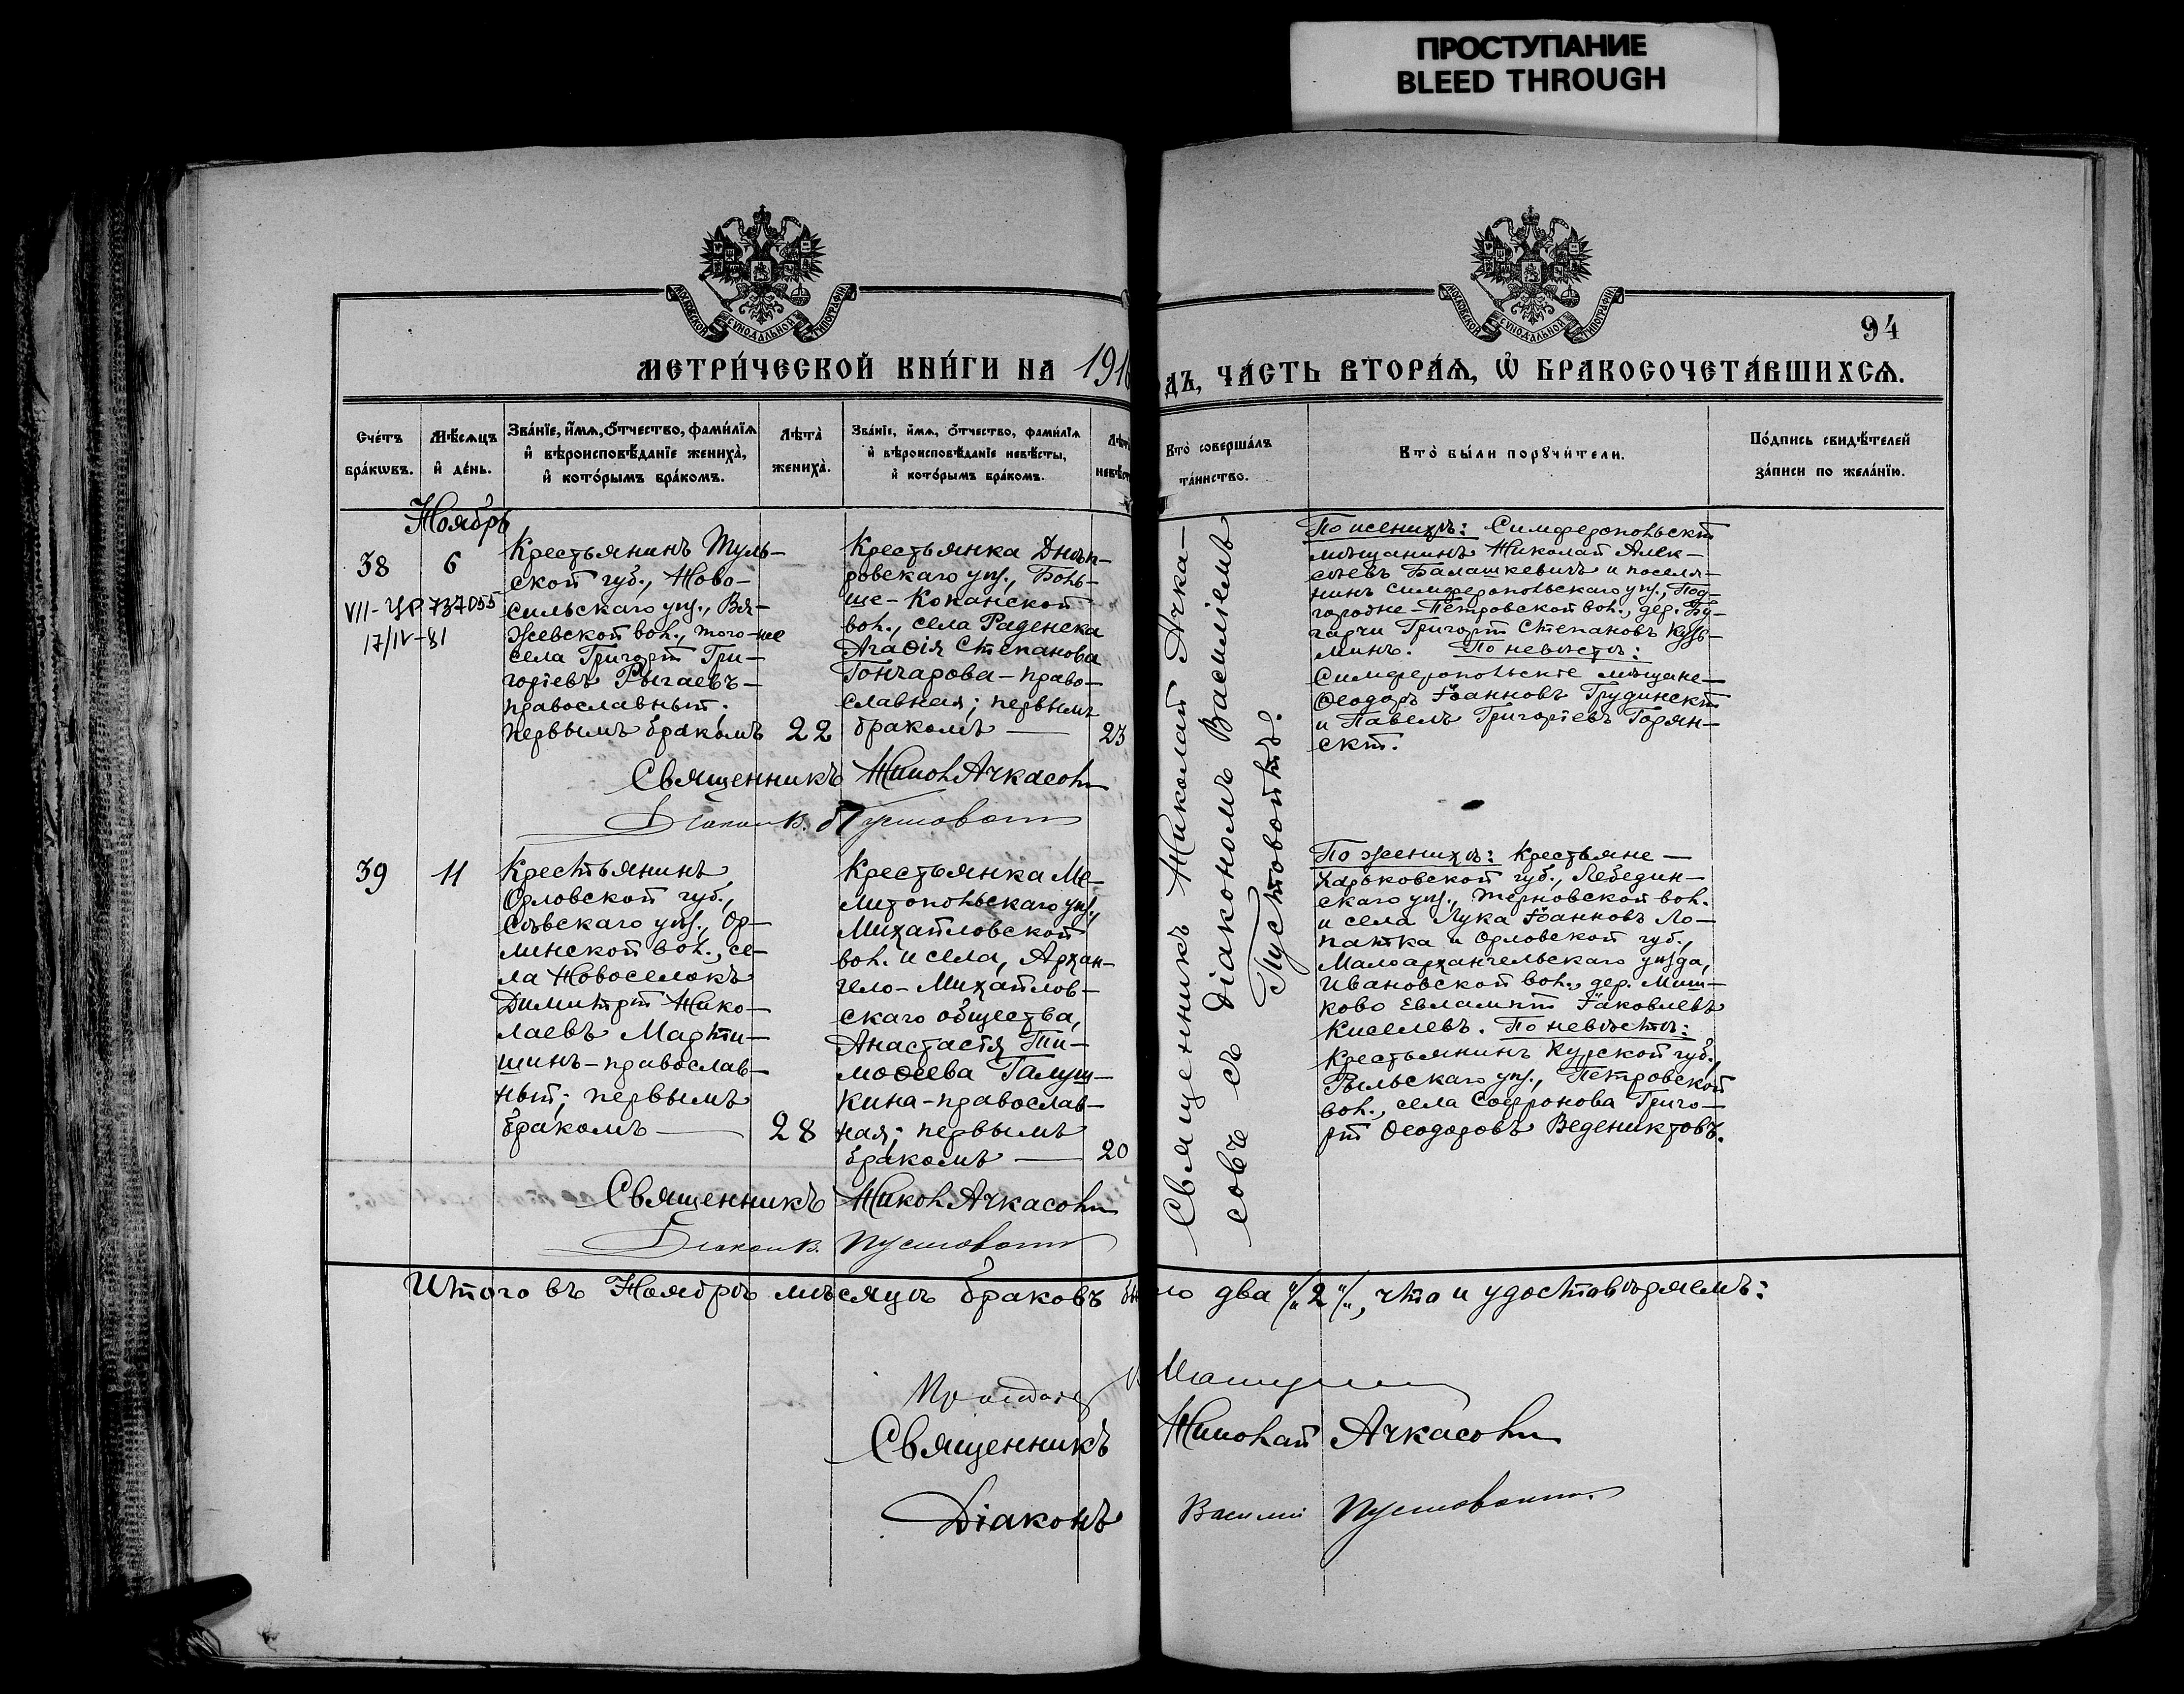 ПРОСТУПАНИЕ
BLEED THROUGH
МОСКОВСКОЙ СУНОДАЛЬНОЙ ТИПОГРАФІИ
МОСКОВСКОЙ СУНОДАЛЬНОЙ ТИПОГРАФІИ
94
МЕТРИ́ЧЕСКОЙ КНИ́ГИ НА 191
ДЪ, ЧА́СТЬ ВТОРА́Ѧ, Ѡ БРАКОСОЧЕТА́ВШИХСѦ.
Сче́тъ
бра́кѡвъ.
Мѣ́сѧцъ
и де́нь.
Зва́нїе, и́мѧ, о́тчество, фами́лїѧ
и вѣроисповѣ́данїе жениха̀,
и кото́рымъ бра́комъ.
Лѣта̀
жениха̀.
Зва́нїе, и́мѧ, о́тчество, фами́лїѧ
и вѣроисповѣ́данїе невѣ́сты,
и кото́рымъ бра́комъ.
Лѣт
невѣст
Кто̀ соверша́лъ
та́инство.
Кто̀ бы́ли порꙋчи́тели.
По́дпись свидѣ́телей
за́писи по жела́нїю.
Ноябрь
38
6
VII-ЦР 737055
17/IV-81
Крестьянинъ Туль-
ской губ., Ново-
сильскаго уѣз., Вя-
жевской вол., того-же
села Григорій Гри-
горіевъ Рыгаевъ-
православный.
первымъ бракомъ
22
Крестьянка Днѣп-
ровскаго уѣз., Боль-
ше-Копанской
вол., села Раденска
Агаѳія Степанова
Гончарова-право-
славная; первымъ
бракомъ —
23
Священникъ Никол Ачкасовъ
Діакон В. Пустовойт
Священникъ Николай Ачка-
совъ съ діакономъ Василіемъ
Пустовойтъ.
По женихѣ: Симферопольскій
мѣщанинъ Николай Алек-
сѣевъ Балашкевичъ и поселя-
нинъ Симферопольскаго уѣз., Под-
городне-Петровской вол., дер. Бу-
гарчи Григорій Степановъ Кузь-
минъ. По невѣстѣ:
Симферопольскіе мѣщане-
Ѳеодоръ Іоанновъ Трудинскій
и Павелъ Григоріевъ Горян-
скій.
39
11
Крестьянинъ
Орловской губ.,
Сѣвскаго уѣз., Ор-
линской вол., се-
ла Новоселокъ
Димитрій Нико-
лаевъ Марти-
шинъ-православ-
ный; первымъ
бракомъ —
28
Крестьянка Ме-
литопольскаго уѣз.,
Михайловской
вол. и села, Архан-
гело-Михайлов-
скаго общества,
Анастасія Ти-
моѳеева Галуш-
кина-православ-
ная; первымъ
бракомъ —
20
Священникъ Никол Ачкасовъ
Діакон В. Пустовойт
По женихѣ: крестьяне —
Харьковской губ., Лебедин-
скаго уѣз., Терновской вол.
и села Лука Іоанновъ Ло-
патка и Орловской губ.,
Малоархангельскаго уѣзда,
Ивановской вол., дер. Миш-
ково Евлампій Іаковлевъ
Киселевъ. По невѣстѣ:
крестьянинъ Курской губ.,
Рыльскаго уѣз., Петровской
вол., села Софронова Григо-
рій Ѳеодоровъ Ведениктовъ.
Итого въ Ноябрѣ мѣсяцѣ браковъ бы ло два "/„2"/„, что и удостовѣряемъ:
Священникъ Николай Ачкасовъ
Діаконъ Василій Пустовойт.